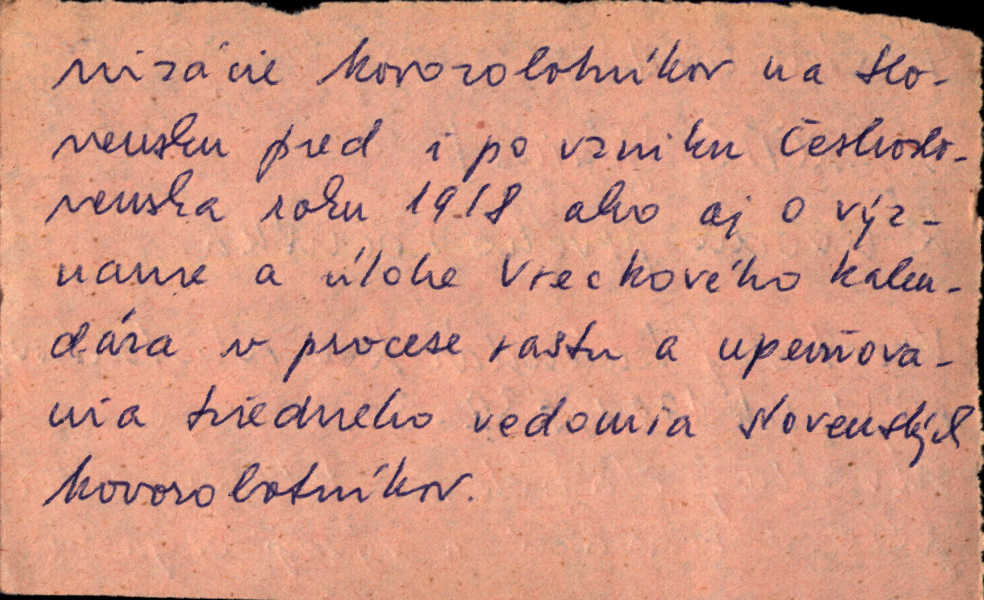 nizácie kovorobotníkov na Slo-
vensku pred i po vzniku Českoslo-
venska roku 1918 ako aj o výz-
name a úlohe Vreckového kalen-
dára v procese rastu a upevňova-
nia triedneho vedomia slovenských
kovorobotníkov.